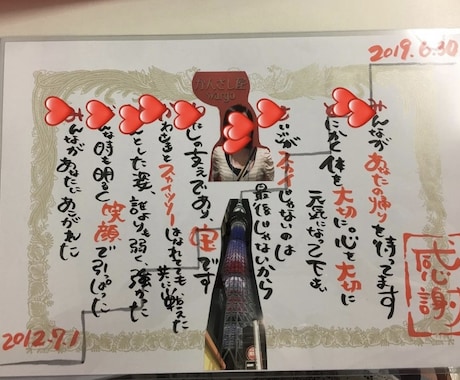 2019.6.30
みんながあなたの帰りを待ってます
とにかく体を大切に。心を大切に
元気になって下さい
いごがスカイじゃないのは
最後じゃないから
しの支えであり、宝です
スカイツリーはなれてても、共に戦えた
とした姿 誰よりも弱く、強かった
んな時も明るく笑顔で引っぱった
みんながあなたにあこがれた
感謝
2012.7.1